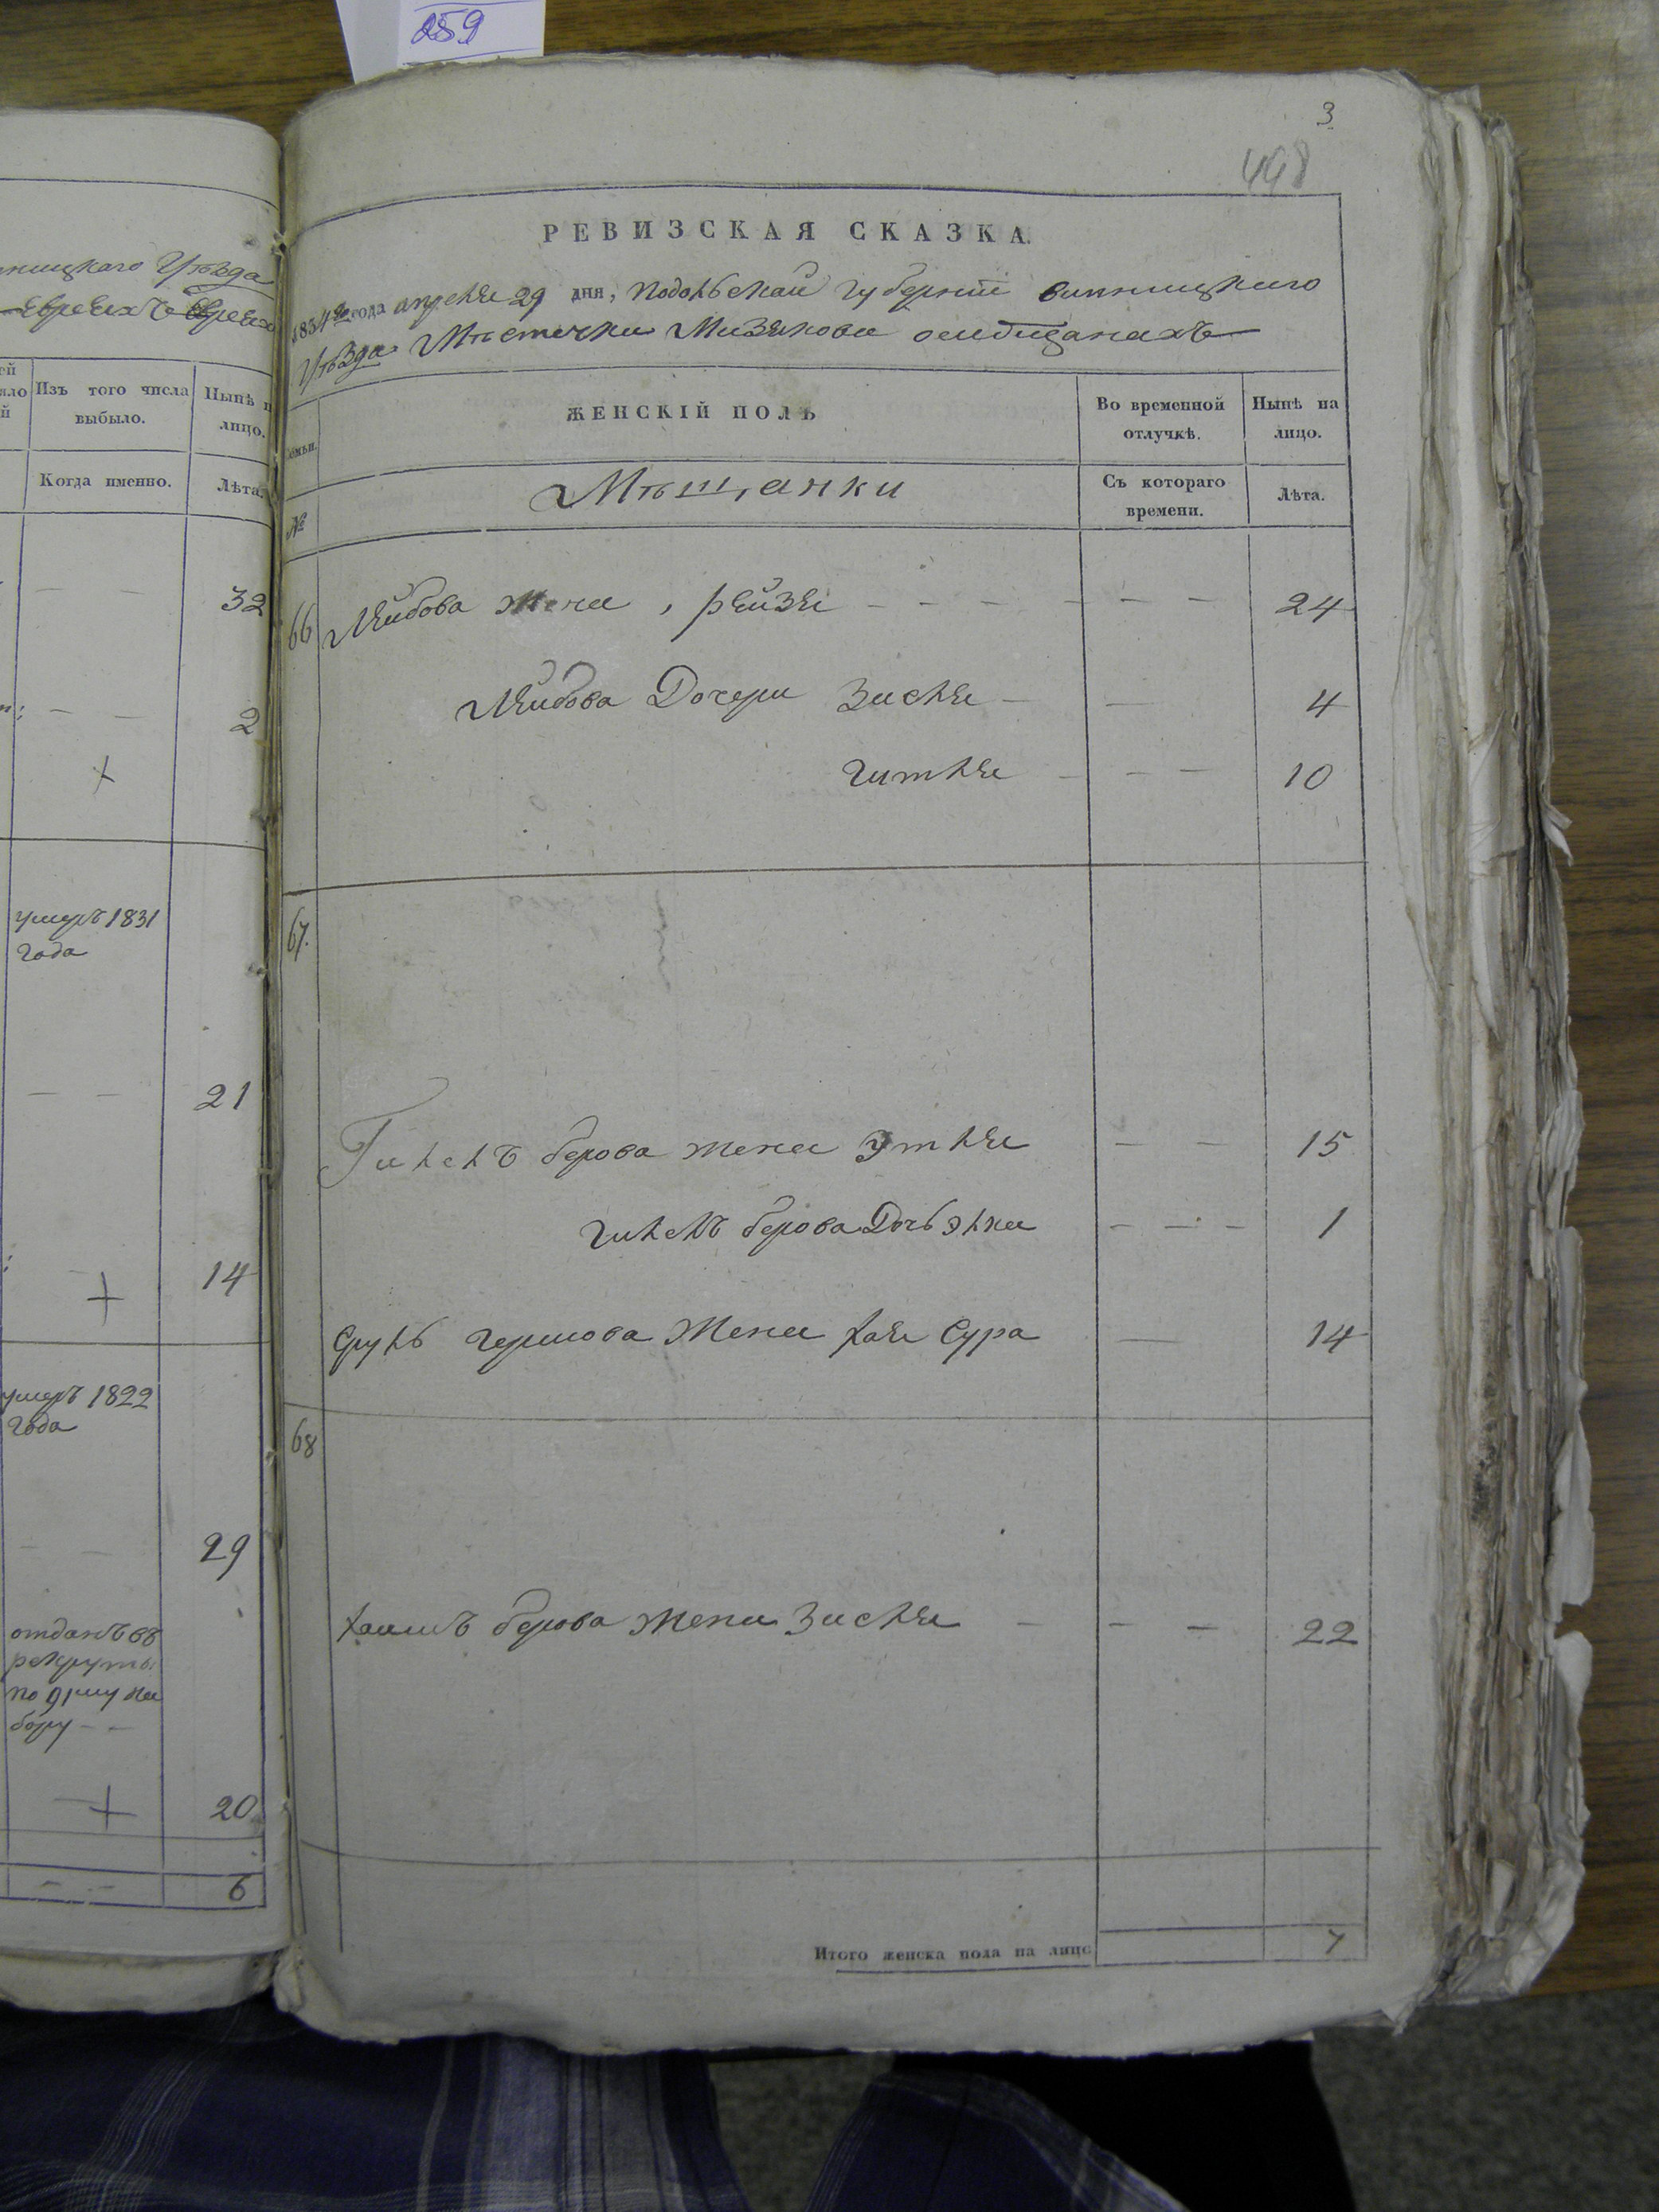 259
3
448
ницкаго Уѣзда
Евреяхъ
Изъ того числа
выбыло.
Нынѣ н
лицо.
Когда именно.
Лѣта.
32
2
умеръ 1831
года
21
14
умеръ 1822
года
29
отданъ въ
рекруты
по 91му на
бору
20
6
РЕВИЗСКАЯ СКАЗКА.
1834го года апреля 29 дня, Подольской губернии винницкого
Уѣзда Мѣстечка Мизякова о мѣщанахъ
семьи.
ЖЕНСКІЙ ПОЛЪ
Во временной
отлучкѣ.
Нынѣ на
лицо.
№
Мѣщанки
Съ котораго
времени.
Лѣта.
66 Лейбова жена, рейзя 24
Лейбова Дочери Зисля 4
Гитля 10
67.
Гилелъ берова жена Этля 15
Гилелъ берова Дочь элка 1
Сруль гершова Жена хая Сура 14
68
хаимъ берова жена Зисля 22
Итого женска пола на лицо 7